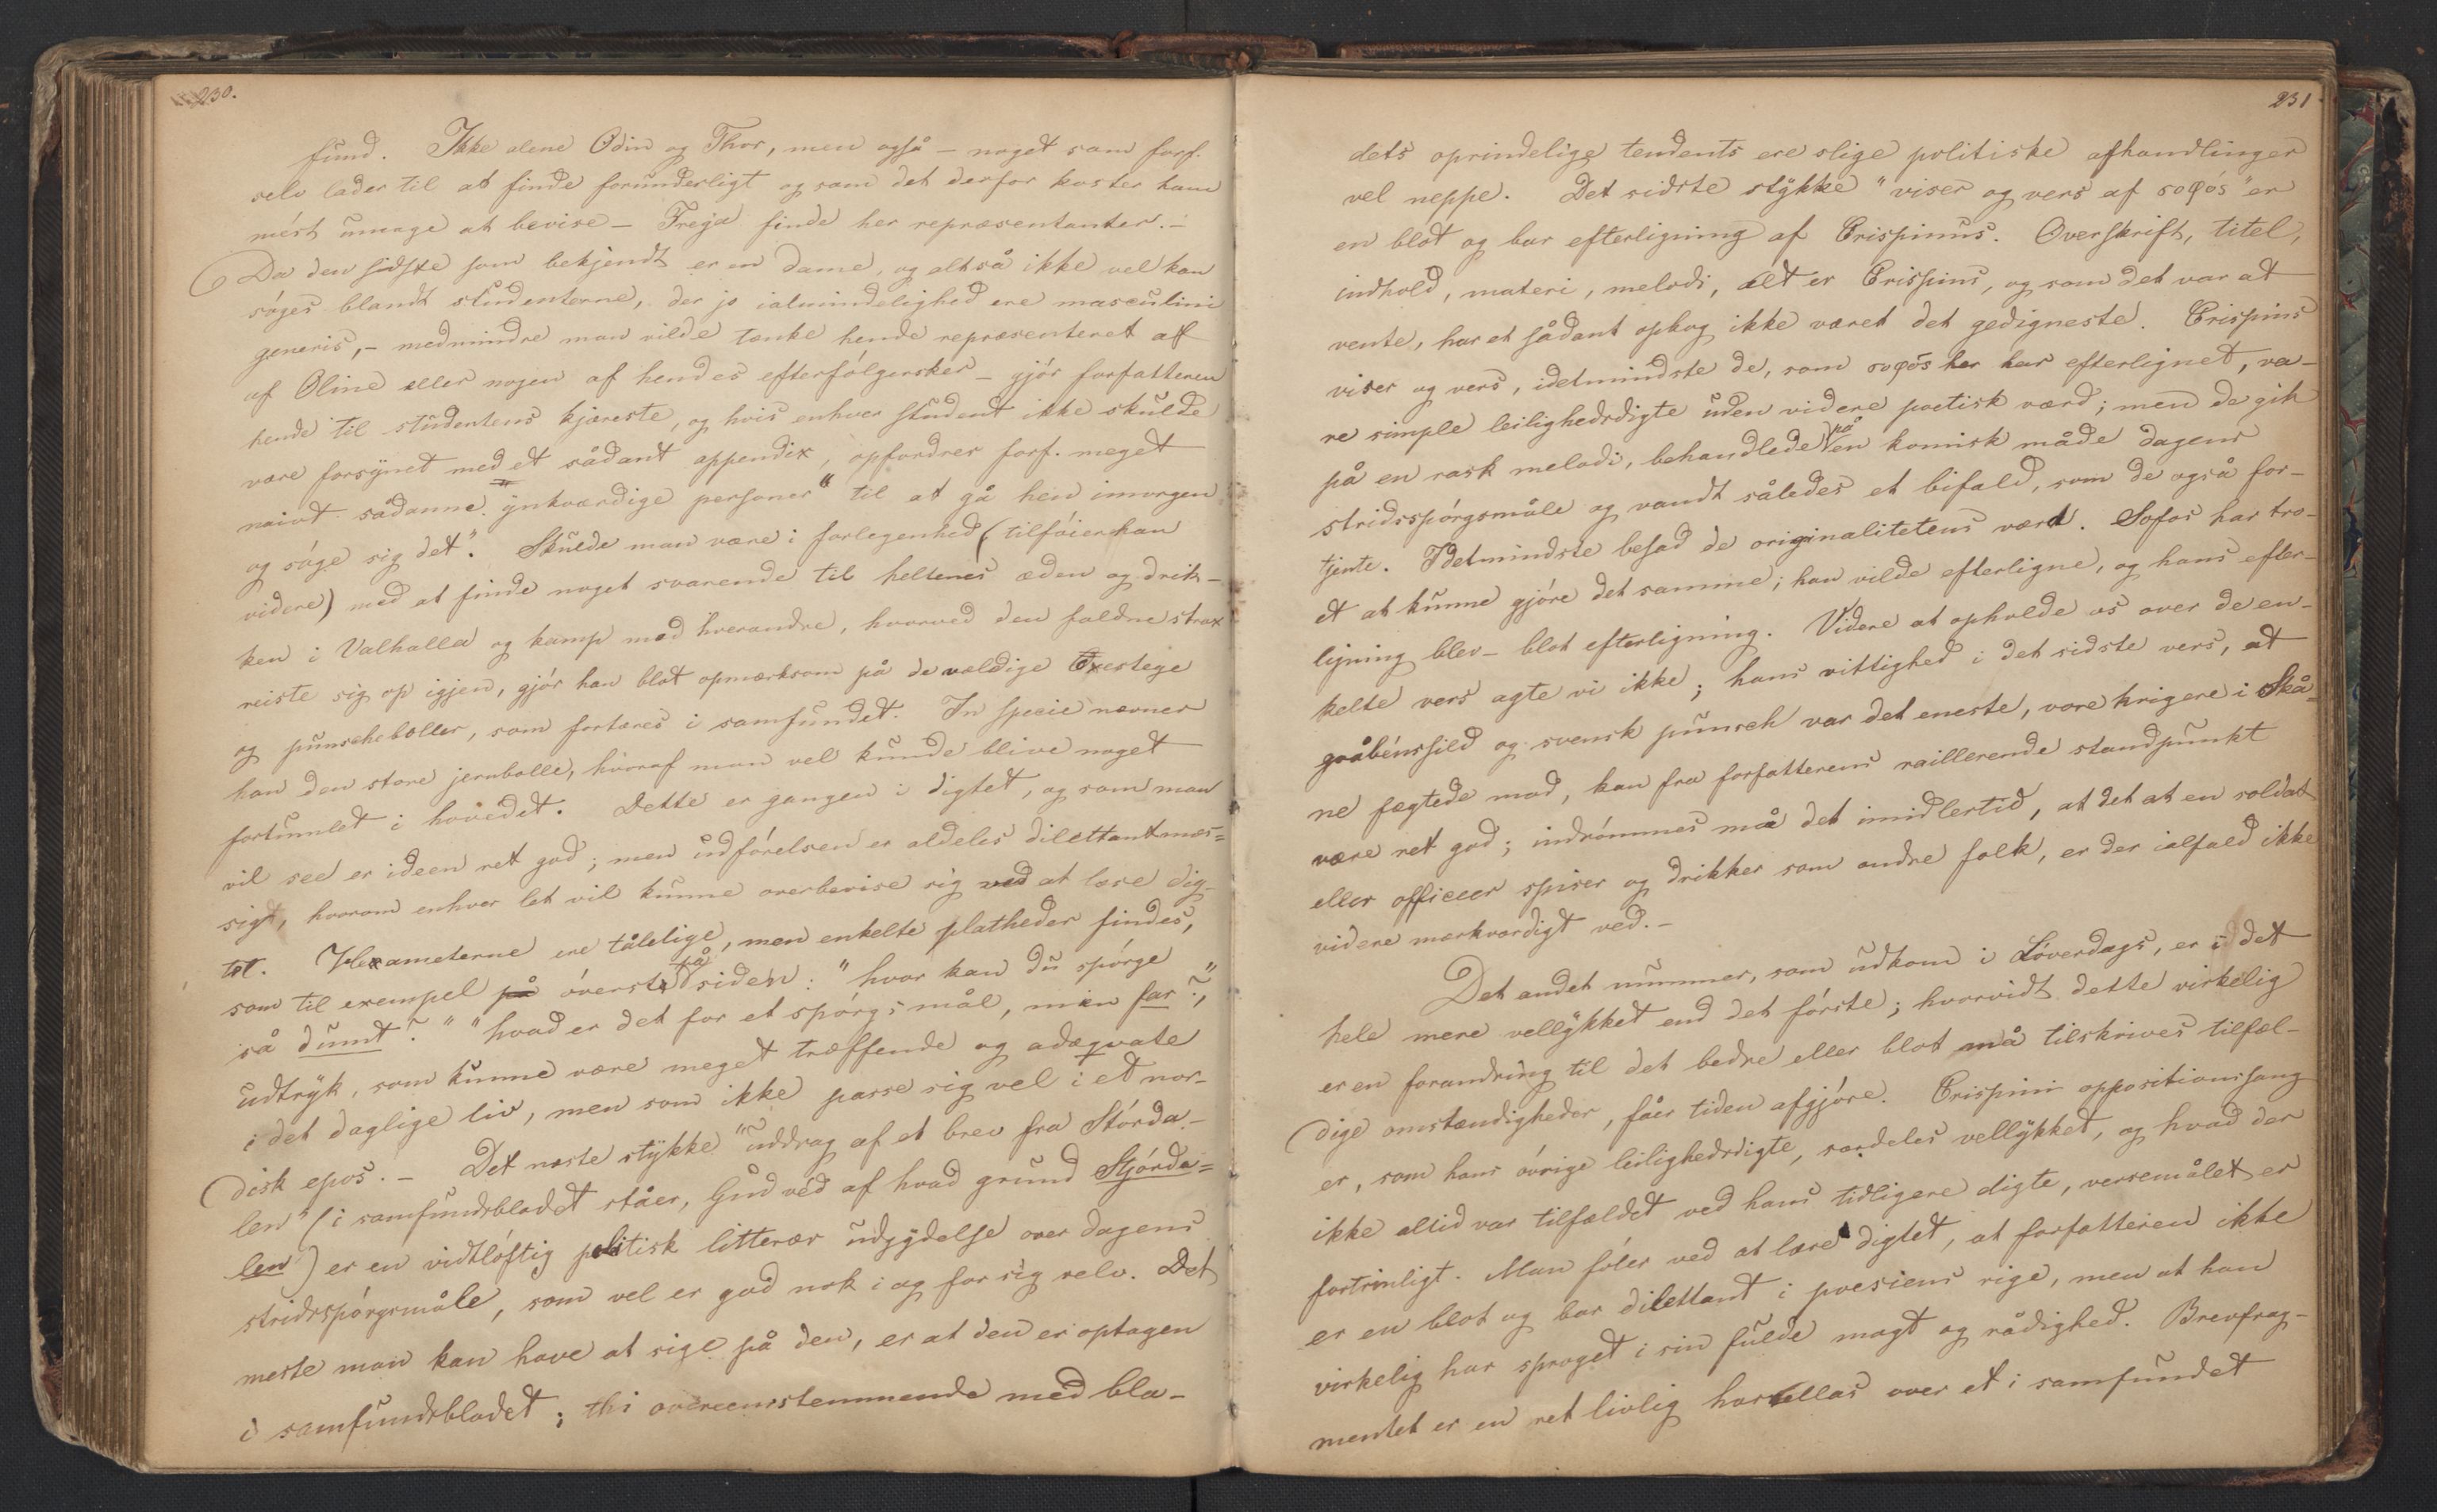 230.
fund. Ikke alene Odin og Thor, men også – noget som forf.
selv lader til at finde forunderligt og som det derfor koster ham
mést umage at bevise – Freja finde her repræsentanter. –
Da den sidste som bekjendt er en dame, og altså ikke vel kan
søges blandt studenterne, der jo ialmindelighed ere masculini
generis, – medmindre man vilde tænke hende repræsenteret af
af Oline eller nogen af hendes efterfølgersker – gjør forfatteren
hende til studentens kjæreste, og hvis enhver student ikke skulde
være forsynet med et sådant appendix, opfordrer forf. meget
naivt sådanne "ynkværdige personer" til at gå hen imorgen
og søge sig det". Skulde man være i forlegenhed (tilføier han
videre) med at finde noget svarende til heltenes æden og drik-
ken i Valhalla og kamp mod hverandre, hvorved den faldne strax
reiste sig op igjen, gjør han blot opmærksom på de vældige Oxestege
og punscheboller, som fortæres i samfundet. In specie nævner
han den store jernbolle, hvoraf man vel kunde blive noget
fortumlet i hovedet. Dette er gangen i digtet, og som man
vil see er ideen ret god; men udførelsen er aldeles dilettantmæs=
sigt, hvorom enhver let vil kunne overbevise sig ved at læse dig-
tet. Hexameterne ere tålelige, men enkelte platheder findes,
som til exempel på øverst på siden: "hvor kan du spørge
så dumt?" "hvad er det for et spørgsmål, min far?",
udtryk, som kunne være meget træffende og adæqvate
i det daglige liv, men som ikke passe sig vel i et nor-
disk epos. – Det næste stykke "uddrag af et brev fra Størda-
len" (i samfundsbladet ståer, Gud véd af hvad grund Stjørda=
len) er en vidtløftig politisk litterær udgydelse over dagens
stridsspørgsmåle, som vel er god nok i og for sig selv. Det
meste man kan have at sige på den, er at den er optagen
i samfundsbladet; thi overeensstemmende med bla-
231
dets oprindelige tendents ere slige politiske afhandlinger
vel neppe. Det sidste stykke "viser og vers af soφós" er
en blot og bar efterligning af Crispinus. Overskrift, titel,
indhold, materi, melodi, alt er Crispins, og som det var at
vente, har et sådant opkog ikke været det gedigneste. Crispins
viser og vers, idetmindste de, som soφós her har efterlignet, va-
re simple leilighedsdigte uden videre poetisk værd; men de gik
på en rask melodi, behandlede på en komisk måde dagens
stridsspørgsmåle og vandt således et bifald, som de også for-
tjente. Idetmindste besad de originalitetens værd. Sofos har tro-
et at kunne gjøre det samme; han vilde efterligne, og hans efter-
ligning blev – blot efterligning. Videre at opholde os over de en-
kelte vers agte vi ikke; hans vittighed i det sidste vers, at
gråbénssild og svensk punsch var det eneste, vore krigere i Skå=
ne fægtede mod, kan fra forfatterens raillerende standpunkt
være ret god; indrømmes må det imidlertid, at det at en soldat
eller officeer spiser og drikker som andre folk, er der ialfald ikke
videre mærkværdigt ved. –
Det andet nummer, som udkom i Løverdags, er i det
hele mere vellykket end det første; hvorvidt dette virkelig
er en forandring til det bedre eller blot må tilskrives tilfæl-
dige omstændigheder, fåer tiden afgjøre. Crispini oppositionssang
er, som hans øvrige leilighedsdigte, særdeles vellykket, og hvad der
ikke altid var tilfældet ved hans tidligere digte, versemålet er
fortrinligt. Man føler ved at læse digtet, at forfatteren ikke
er en blot og bar dilettant i poesiens rige, men at han
virkelig har sproget i sin fulde magt og rådighed. Brevfrag-
mentet er en ret livlig harcellas over et i samfundet